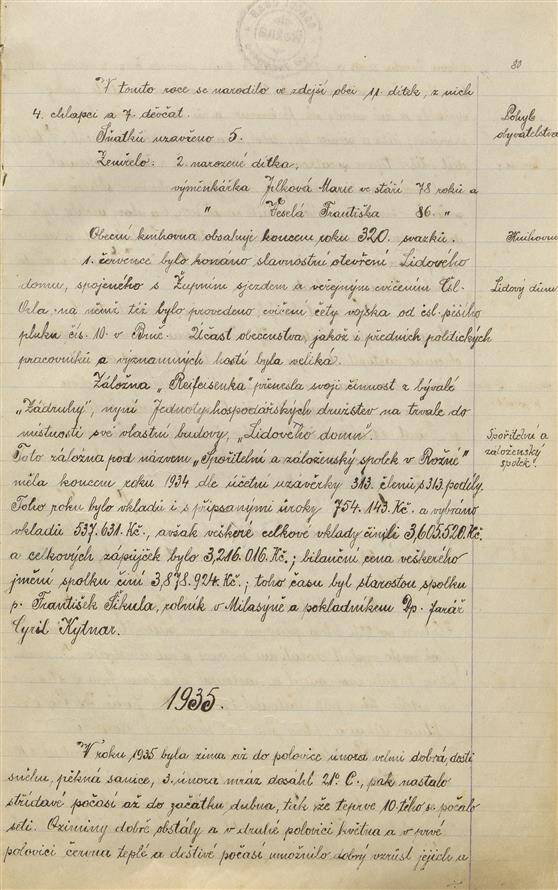 80
V tomto roce se narodilo ve zdejší obci 11. dítek, z nich
4. chlapci a 7. děvčat.
Pohyb
obyvatelstva
Sňatků uzavřeno 5.
Zemřelo: 2. narozené dítka,
výměnkářka Jílková Marie ve stáří 78 roků a
" Veselá Františka 86. "
Obecní knihovna obsahuje koncem roku 320. svazků.
Knihovna
1. července bylo konáno slavnostní otevření Lidového
domu, spojeného s Župním sjezdem a veřejným cvičením Čsl.
Lidový dům
Orla na němž též bylo provedeno cvičení čety vojska od čsl. pěšího
pluku čís. 10. v Brně. Účast obecenstva, jakož i předních politických
pracovníků a významných hostí byla veliká.
Záložna „Reifeisenka" přenesla svoji činnost z bývalé
„Zádruhy", nyní Jednoty hospodářských družstev na trvale do
místnosti své vlastní budovy, „Lidového domu".
Spořitelní a
záloženský
spolek.
Tato záložna pod názvem „Spořitelní a záloženský spolek v Rožné"
měla koncem roku 1934 dle účetní uzávěrky 313. členů s 313. podíly.
Toho roku bylo vkladů i s připsanými úroky 754.143. Kč. a vybráno
vkladů 537.631. Kč., avšak veškeré celkové vklady činily 3,605.520. Kč.
a celkových zápůjček bylo 3,216.016. Kč.; bilanční cena veškerého
jmění spolku činí 3,878.924. Kč.; toho času byl starostou spolku
p. František Šikula, rolník v Milasýně a pokladníkem Dp. farář
Cyril Kytnar.
1935.
V roku 1935 byla zima až do polovice února velmi dobrá, dosti
sněhu, pěkná sanice, 3. února mráz dosáhl 21° C., pak nastalo
střídavé počasí až do začátku dubna, tak vže teprve 10. téhož se počalo
seti. Oziminy dobře obstály a v druhé polovici května a v prvé
polovici června teplé a deštivé počasí umožnilo dobrý vzrůst jejich a